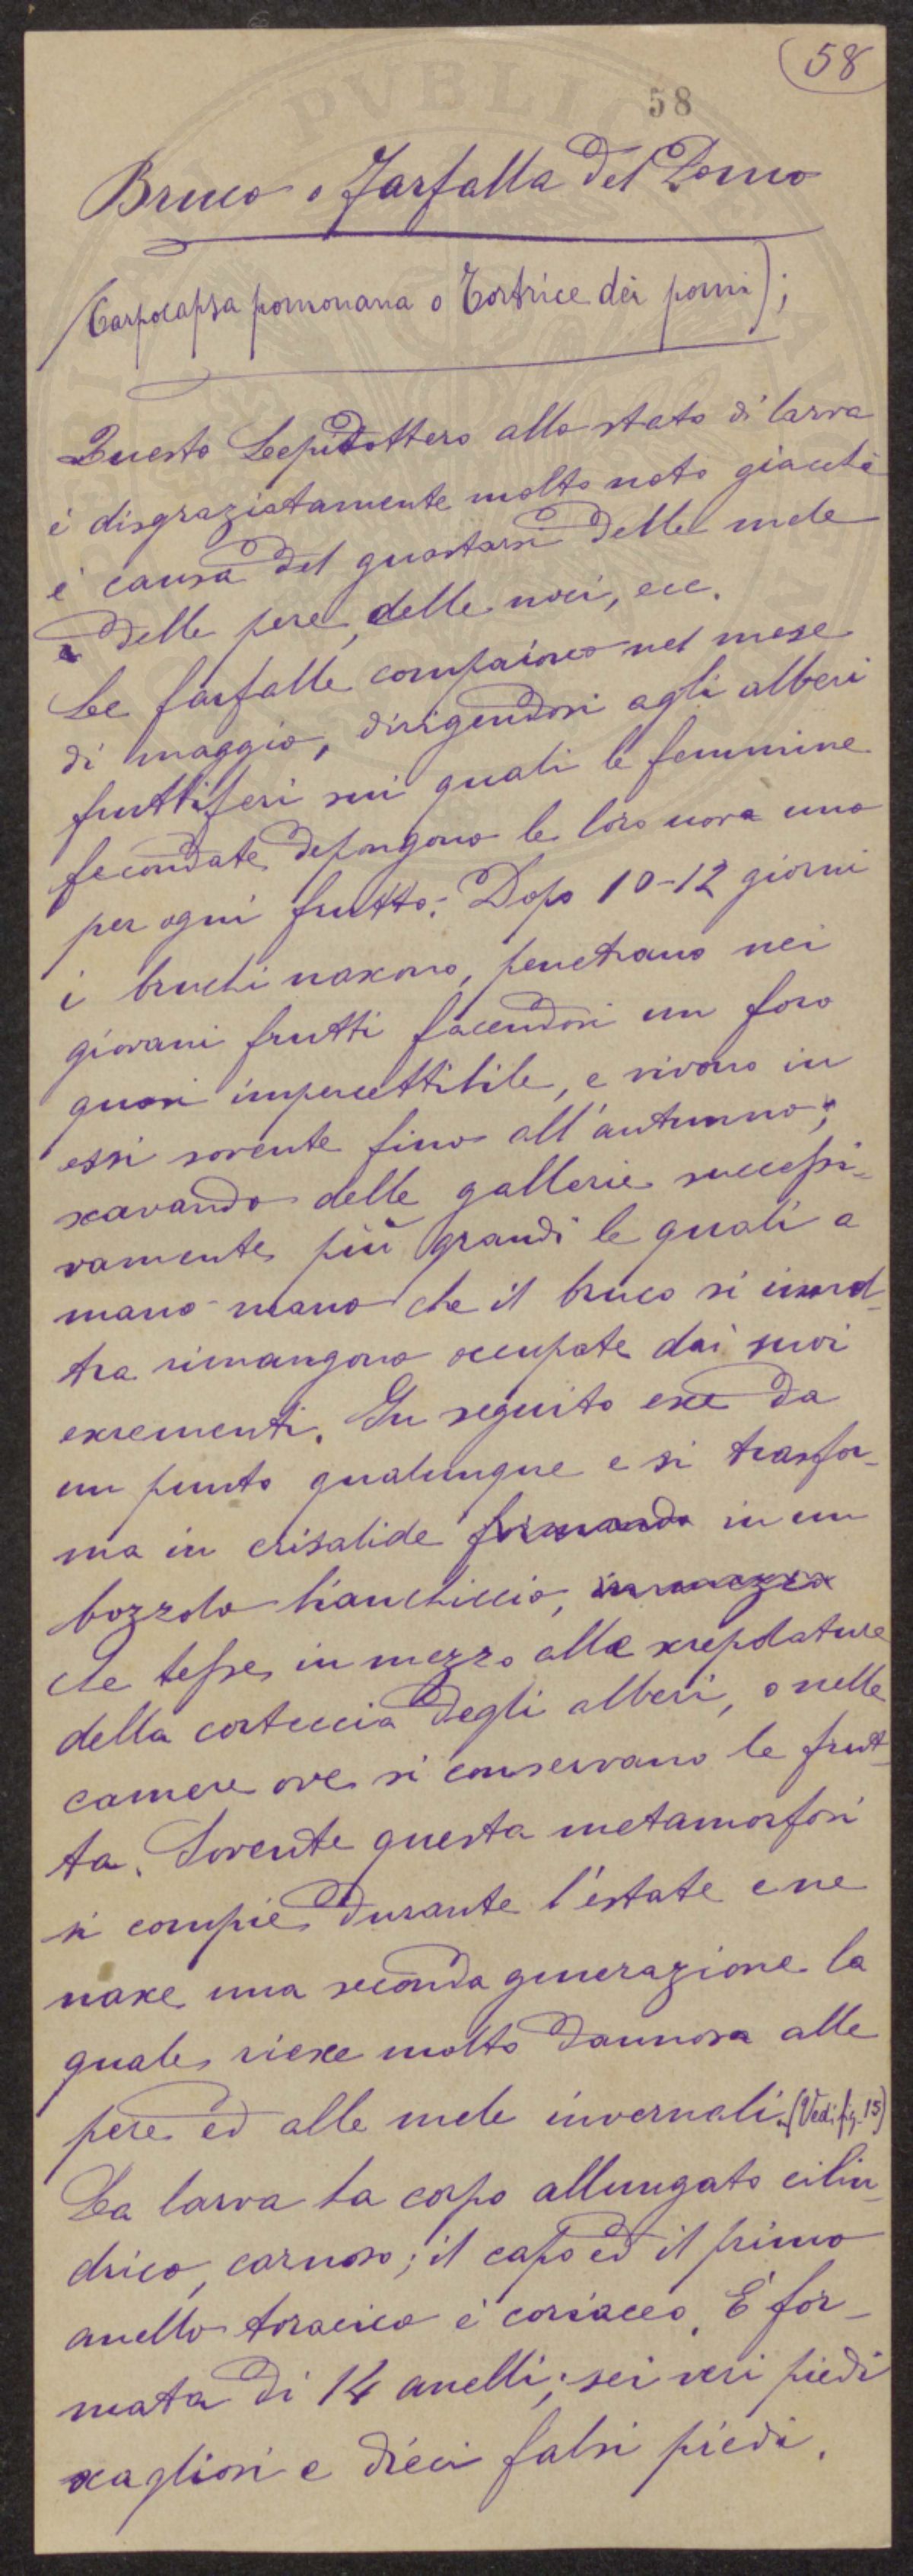 58
58
Bruco o Farfalla del Pomo
(Carpocapsa pomonana o Tortrice dei pomi);
Questo Lepidottero allo stato di larva
è disgraziatamente molto noto giacchè
è causa del guastarsi delle mele
delle pere, delle noci, ecc.
Le farfalle compaiono nel mese
di maggio, dirigendosi agli alberi
fruttiferi sui quali le femmine
fecondate depongono le loro uova uno
per ogni frutto. Dopo 10-12 giorni
i bruchi nascono, penetrano nei
giovani frutti facendosi un foro
quasi impercettibile, e vivono in
essi sovente fino all'autunno;
scavando delle gallerie successi-
vamente più grandi le quali a
mano mano che il bruco si inol-
tra rimangono occupate dai suoi
escrementi. In seguito esce da
un punto qualunque e si trasfor-
ma in crisalide formando in un
bozzolo bianchiccio,
che tesse in mezzo alle screpolature
della corteccia degli alberi, o nelle
camere ove si conservano le frut-
ta. Sovente questa metamorfosi
si compie durante l'estate e ne
nasce una seconda generazione la
quale riesce molto dannosa alle
pere ed alle mele invernali. (Vedi fig. 15)
La larva ha corpo allungato cilin-
drico, carnoso; il capo ed il primo
anello toracico è coriaceo. È for-
mata di 14 anelli; sei veri piedi
scagliosi e dieci falsi piedi.